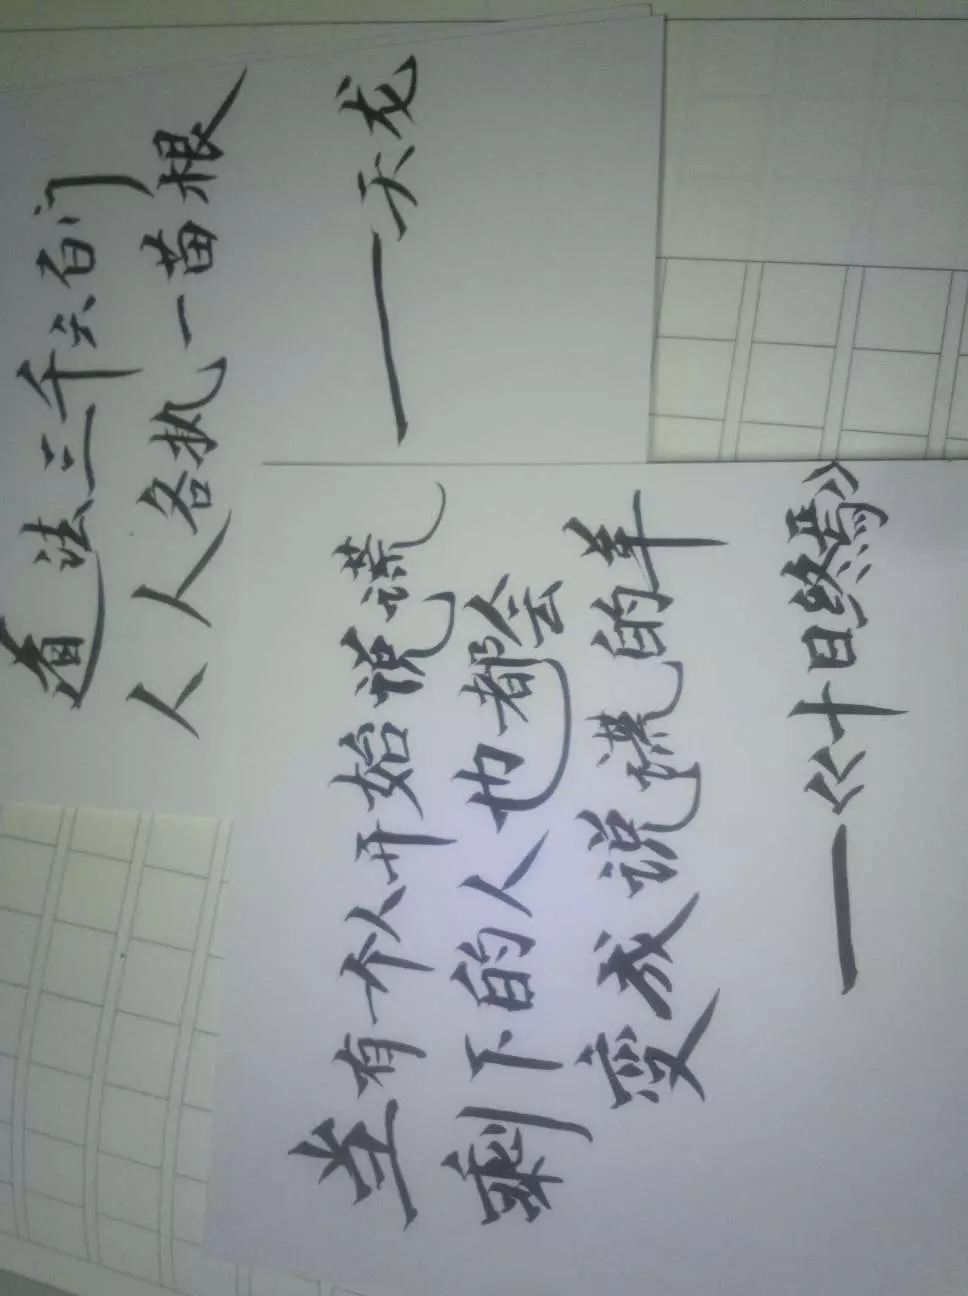 道法三千六百门
人人各执一苗根
——天龙
当有一个人开始说谎
剩下的人也都会
变成说谎的羊
——《十日终焉》